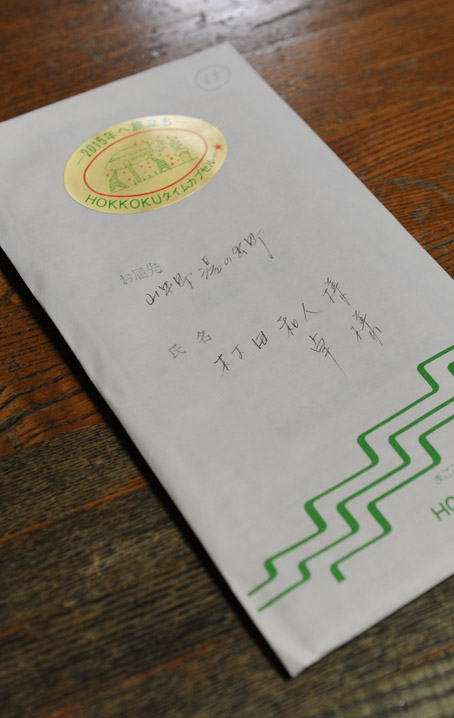 -2015年へ旅立ち-
HOKKOKUタイムカプセル
お届先
山中町 湯の出町
氏名
村田 和人様
卓様
HO